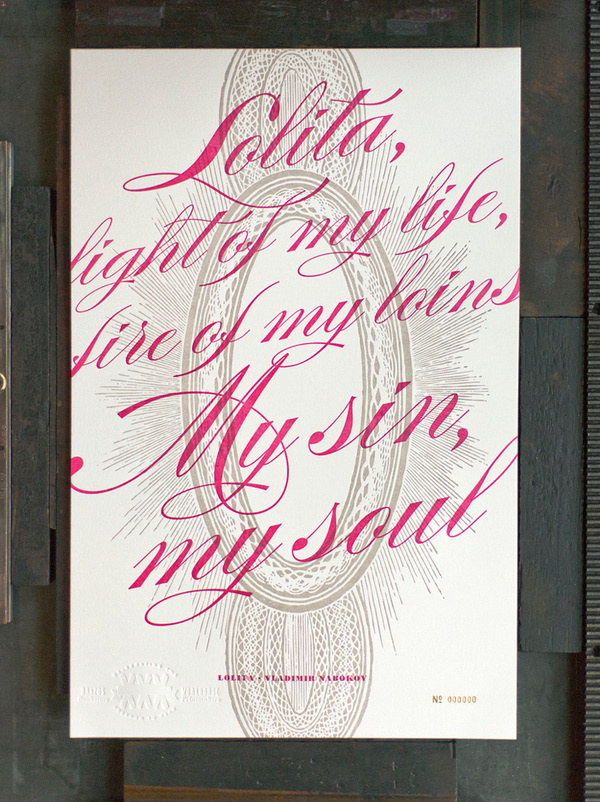 Lolita,
light of my life,
fire of my loins
My sin,
my soul
LOLITA · VLADIMIR NABOKOV
Nº 000000